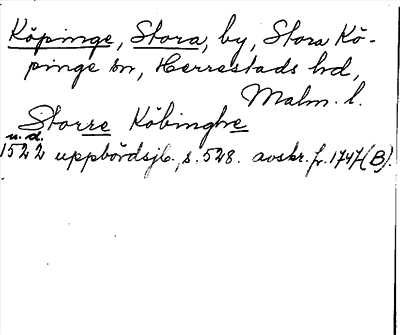 Köpinge, Stora, by, Stora Kö-
pinge sn, Herrestads hd,
Malm. l.
Storre Köbinghe
u.d.
1522 uppbördsjb., s. 528. avskr. fr. 1747 (B).